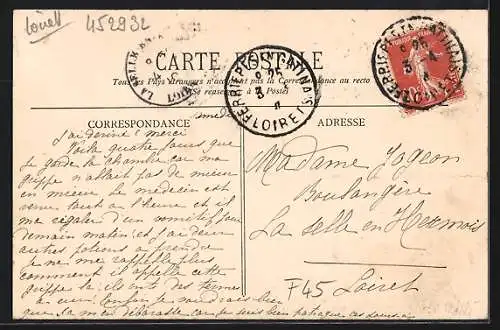 Loiret 452932
CARTE POSTALE
Tous les Pays étrangers n'acceptent pas la Correspondance au recto
Se reseigner à la Poste
FERRIÈRES-GATINAIS
LOIRET
CORRESPONDANCE
ADRESSE
merci
Voilà quatre jours que
je garde la chambre car ma
grippe n'allait pas de mieux
en mieux le medecin est
venu tout a l'heure et il
me régaler d'un vomitif pour
demain matin: et j'ai deux
autres potions a prendre
je ne me rappelle plus
comment il appelle cette
grippe la: ils ont des termes
a eux: Enfin je voudrais bien
que sa me débarrasse
Madame Jogeon
Boulangère
La Selle en Hermois
Loiret
F45